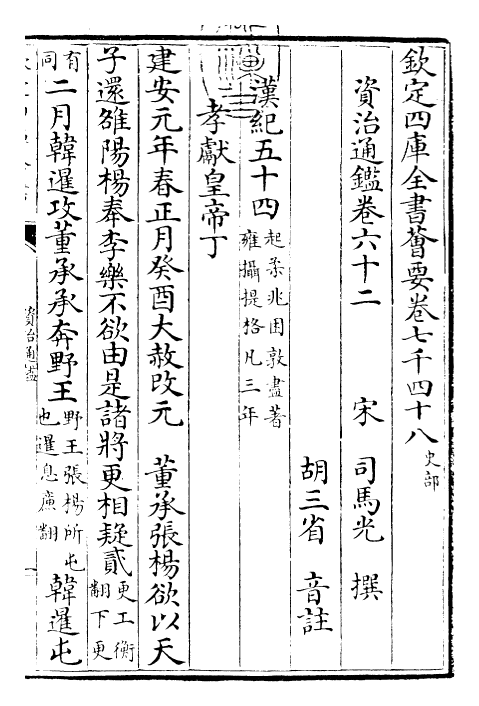 欽定四庫全書薈要卷七千四十八 史部
資治通鑑卷六十二 宋 司馬光 撰
胡三省 音註
漢紀五十四 起柔兆困敦盡著雍攝提格凡三年
孝獻皇帝丁
建安元年春正月癸酉大赦改元 董承張楊欲以天
子還雒陽楊奉李樂不欲由是諸將更相疑貳 更工衡翻下更
有同 二月韓暹攻董承承奔野王 野王張楊所屯也暹息廉翻 韓暹屯
資治通鑑